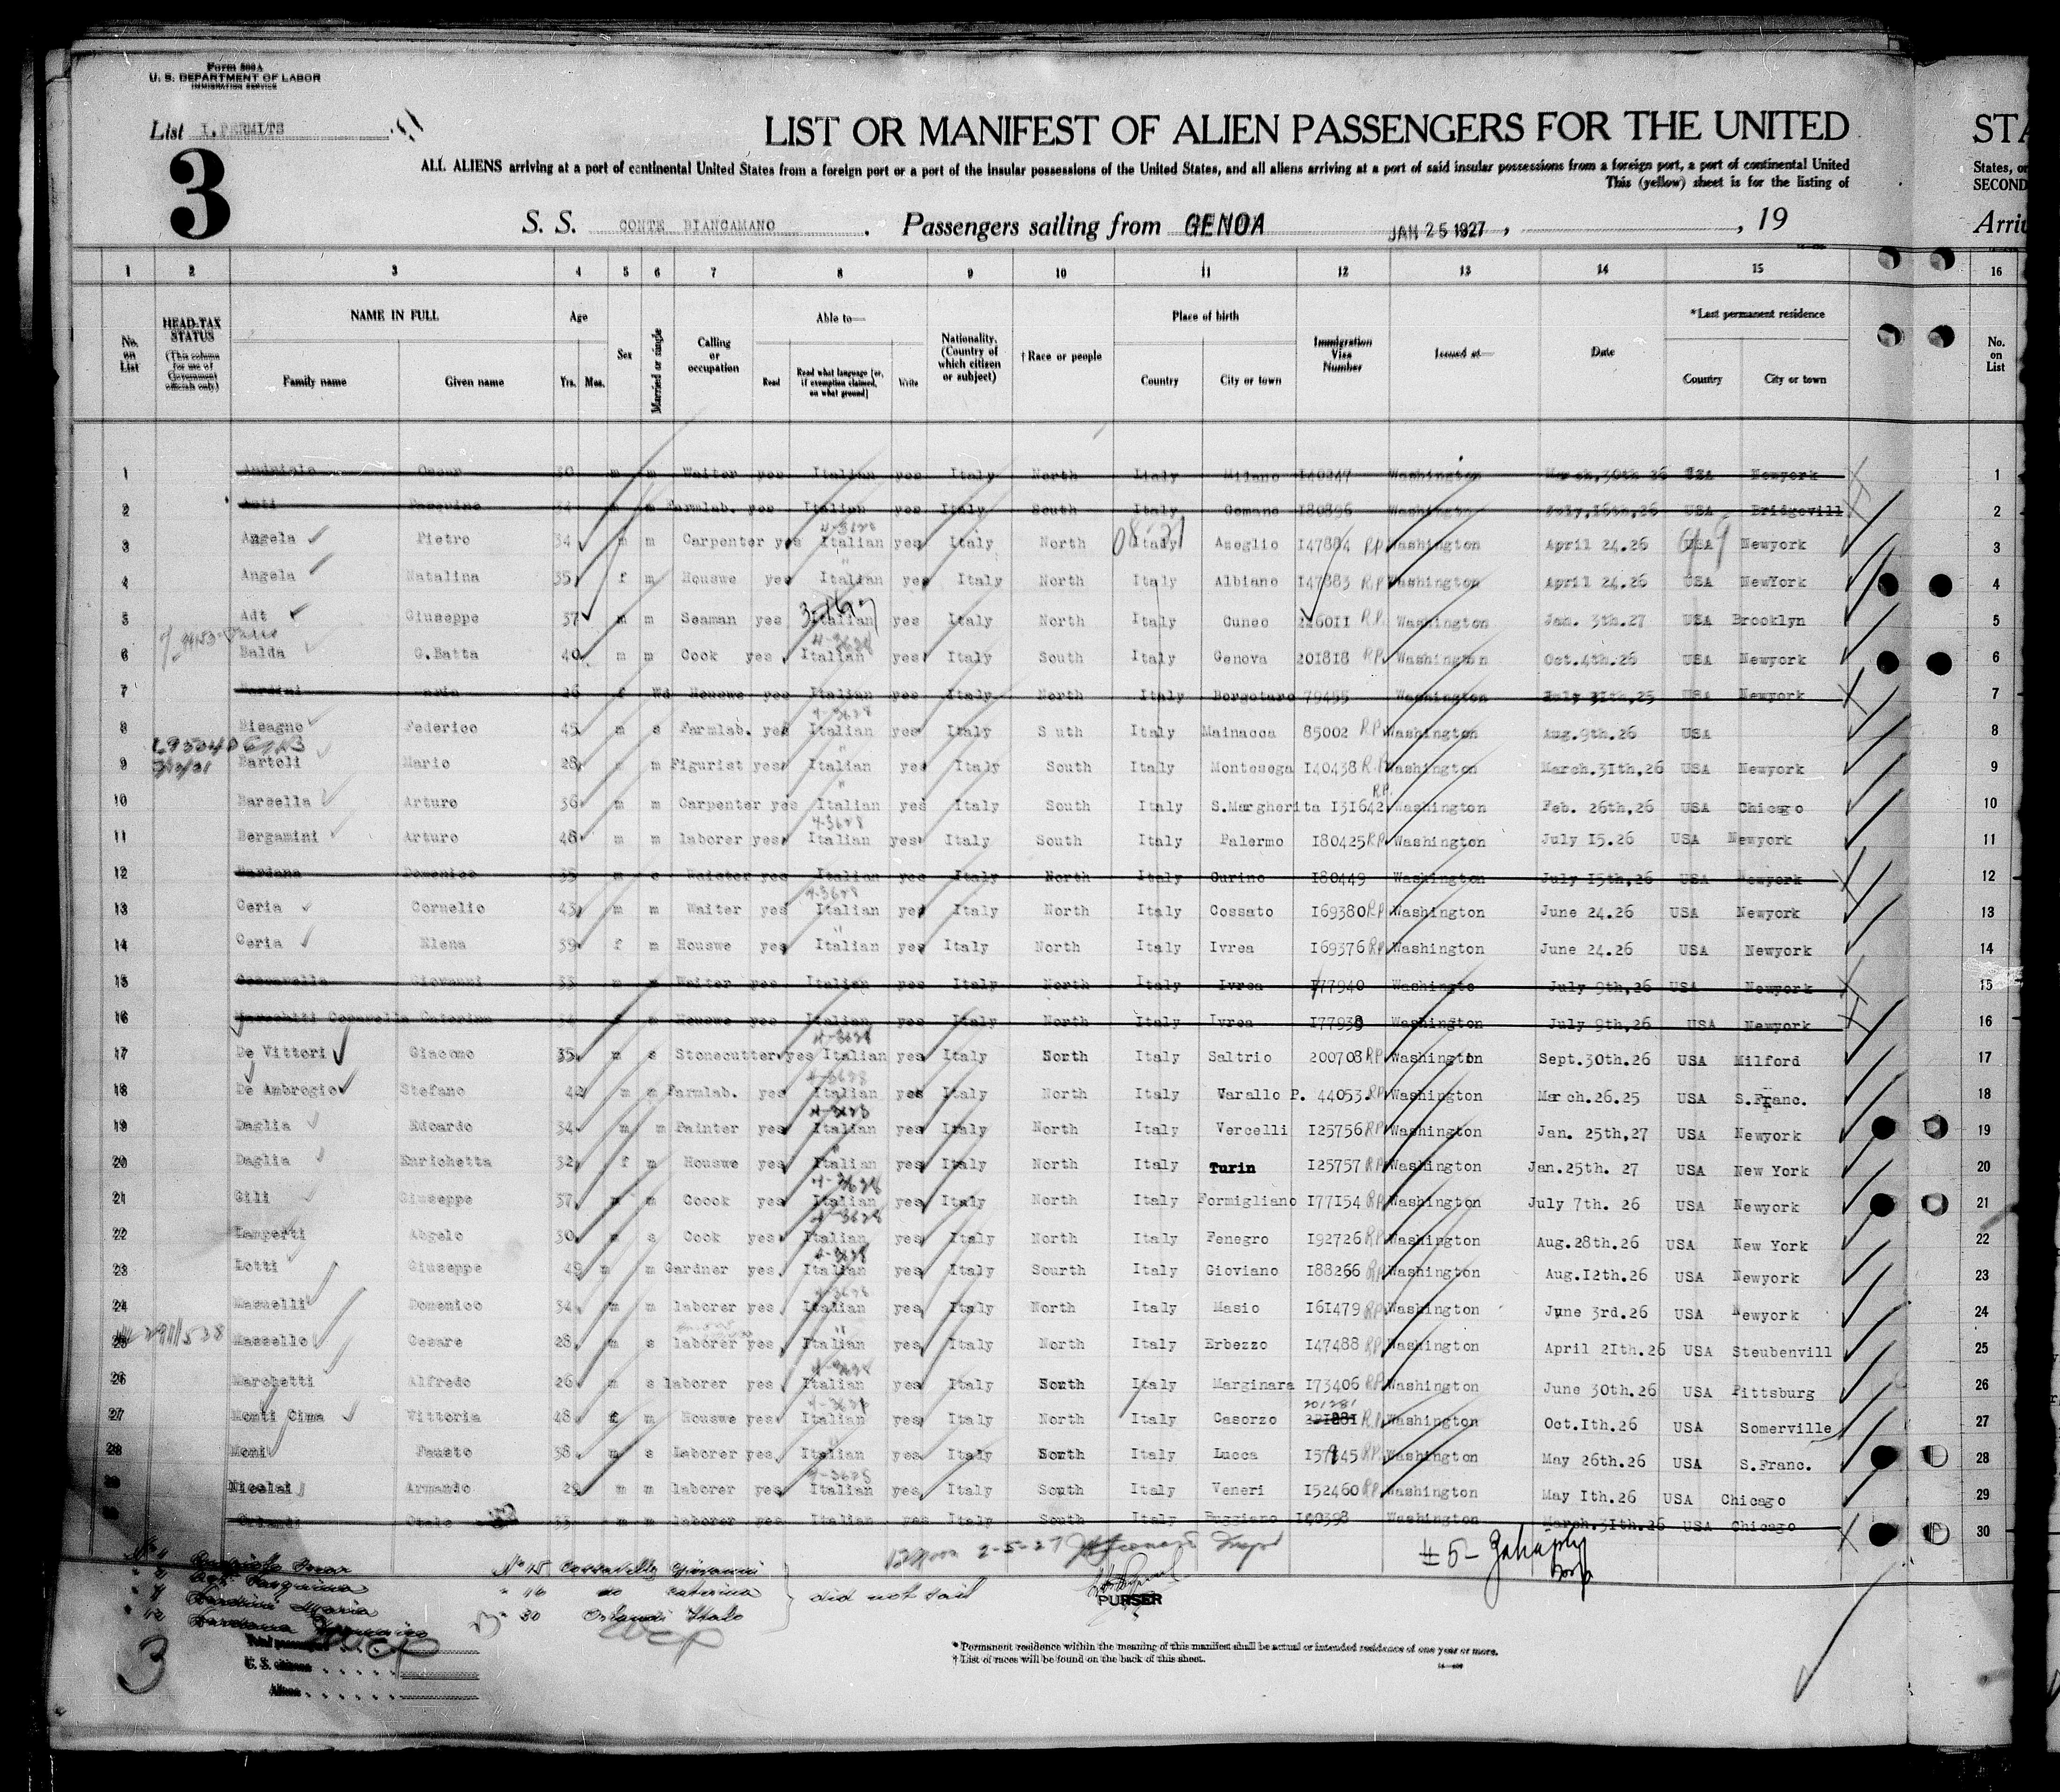 Form 500A
U. S. DEPARTMENT OF LABOR
IMMIGRATION SERVICE
List I.PERMITS
3
LIST OR MANIFEST OF ALIEN PASSENGERS FOR THE UNITED
STA
ALL ALIENS arriving at a port of continental United States from a foreign port or a port of the insular possessions of the United States, and all aliens arriving at a port of said insular possessions from a foreign port, a port of continental United
States, or
This (yellow) sheet is for the listing of
SECOND
S. S. CONTE BIANCAMANO . Passengers sailing from GENOA JAN 25 1927 , , 19
Arri
1 2 3 4 5 6 7 8 9 10 11 12 13 14 15 16
No. on List
HEAD-TAX STATUS (This column for use of Government officials only)
NAME IN FULL
Family name Given name
Age
Yrs. Mos.
Sex
Married or single
Calling or occupation
Able to—
Read
Read what language [or, if exemption claimed, on what ground]
Write
Nationality. (Country of which citizen or subject)
† Race or people
Place of birth
Country City or town
Immigration Visa Number
Issued at—
Date
*Last permanent residence
Country City or town
No. on List
1 Oscar 30 m m Waiter yes Italian yes Italy North Italy Milano I40247 Washington March,30th 26 USA Newyork 1
2 34 m m Farmlab. yes Italian yes Italy South Italy Comano I80896 Washington July,16th,26 USA Bridgevill 2
4-3628
3 Angela Pietro 34 m m Carpenter yes Italian yes Italy North Italy Azeglio I47884 RP Washington April 24.26 USA Newyork 3
4 Angela Natalina 35 f m Houswe yes Italian yes Italy North Italy Albiano I47883 RP Washington April 24.26 USA NewYork 4
5 Adt Giuseppe 37 m m Seaman yes Italian yes Italy North Italy Cuneo 226011 R.P. Washington Jan. 3th.27 USA Brooklyn 5
4-3628
6 Balda G.Batta 40 m m Cook yes Italian yes Italy South Italy Genova 201818 RP Washington Oct.4th.26 USA Newyork 6
7 Nardini Maria 26 f Wd Houswe yes Italian yes Italy North Italy Borgotaro 79455 Washington July 31th,25 USA Newyork 7
4-3628
8 Bisagno Federico 45 m s Farmlab. yes Italian yes Italy S uth Italy Mainacca 85002 RP Washington Aug.9th.26 USA 8
9 Bartoli Mario 28 m m Figurist yes Italian yes Italy South Italy Montesega I40438 R.P. Washington March.3Ith,26 USA Newyork 9
10 Barsella Arturo 36 m m Carpenter yes Italian yes Italy South Italy S.Margherita I3I642 RP. Washington Feb. 26th,26 USA Chicago 10
4-3628
11 Bergamini Arturo 48 m m laborer yes Italian yes Italy South Italy Palermo I80425 RP Washington July I5.26 USA Newyork 11
12 Bardana Domenico 35 m s Waister yes Italian yes Italy North Italy Ourino I80449 Washington July I5th,26 USA Newyork 12
4-3628
13 Ceria Cornelio 43 m m Waiter yes Italian yes Italy North Italy Cossato I69380 RP Washington June 24.26 USA Newyork 13
14 Ceria Elena 39 f m Houswe yes Italian yes Italy North Italy Ivrea I69376 RP Washington June 24.26 USA Newyork 14
15 Giovanni 35 m m Waiter yes Italian yes Italy North Italy Ivrea I77940 Washingto July 9th,26 USA Newyork 15
16 Coparella Caterina f m Houswe yes Italian yes Italy North Italy Ivrea I77939 Washington July 9th,26 USA Newyork 16
4-3628
17 De Vittori Giacomo 35 m s Stonecutter yes Italian yes Italy North Italy Saltrio 200708 RP Washington Sept.30th.26 USA Milford 17
4-3628
18 De Ambrogio Stefano 42 m m Farmlab. yes Italian yes Italy North Italy Varallo P. 44053 RP Washington March.26.25 USA S.Franc. 18
4-3628
19 Daglia Edoardo 34 m m Painter yes Italian yes Italy North Italy Vercelli I25756 RP Washington Jan. 25th,27 USA Newyork 19
20 Daglia Enrichetta 32 f m Houswe yes Italian yes Italy North Italy Turin I25757 RP Washington Jan.25th. 27 USA New York 20
4-3628
21 Gili Giuseppe 37 m m Coook yes Italian yes Italy North Italy Formigliano I77I54 RP Washington July 7th. 26 USA Newyork 21
4-3628
22 Lamperti Abgelo 30 m s Cook yes Italian yes Italy North Italy Fenegro I92726 RP Washington Aug.28th.26 USA New York 22
4-3628
23 Lotti Giuseppe 49 m m Gardner yes Italian yes Italy Sourth Italy Gioviano I88266 RP Washington Aug.I2th.26 USA Newyork 23
4-3628
24 Masuelli Domenico 34 m m laborer yes Italian yes Italy North Italy Masio I6I479 RP Washington June 3rd.26 USA Newyork 24
25 Massello Cesare 28 m s laborer yes Italian yes Italy North Italy Erbezzo I47488 RP Washington April 2Ith.26 USA Steubenvill 25
4-3628
26 Marchetti Alfredo 26 m s laborer yes Italian yes Italy South Italy Marginara I73406 RP Washington June 30th.26 USA Pittsburg 26
4-3628 201281
27 Monti Cima Vittoria 48 f m Houswe yes Italian yes Italy North Italy Casorzo R.P. Washington Oct.Ith.26 USA Somerville 27
28 Moni Fausto 38 m s Laborer yes Italian yes Italy South Italy Lucca I57845 RP Washington May 26th.26 USA S.Franc. 28
4-3628
29 Nicolai Armando 29 m m laborer yes Italian yes Italy South Italy Veneri I52460 RP Washington May Ith.26 USA Chicago 29
30 Orlandi Otalo 33 m m laborer yes Italian yes Italy South Italy Buggiano I40398 Washington March.3Ith.26 USA Chicago 30
No 15 Giovanni
" 16 do Caterina
did not sail
" 30 Orlandi Italo
2-5-27
PURSER
3
Total passengers
U. S. citizens
Aliens
* Permanent residence within the meaning of this manifest shall be actual or intended residence of one year or more.
† List of races will be found on the back of this sheet.